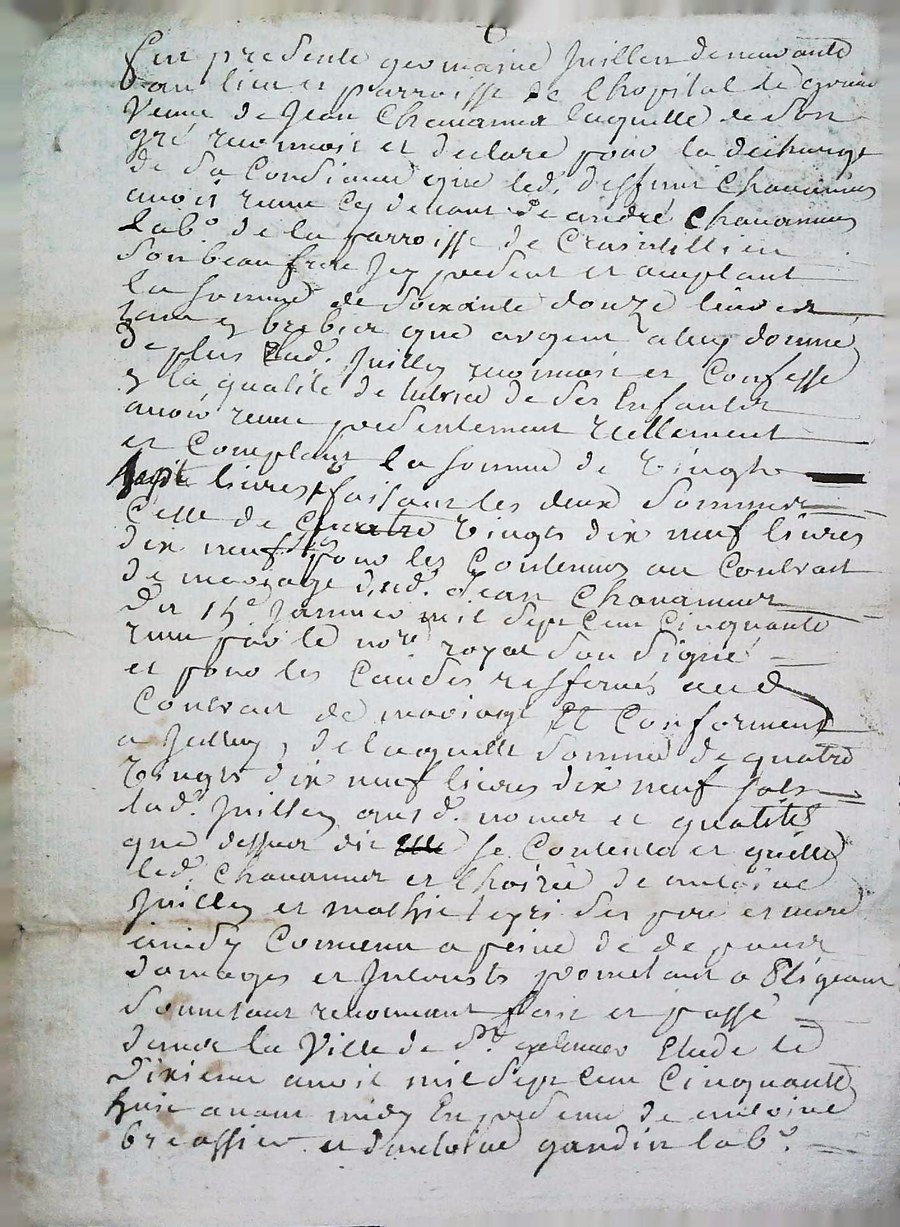 fut presente germaine Juillen demeurante
au lieu et parroisse de lhopital le grand
veuve de Jean Chavannes laquelle de son
gré reconnoit et declare pour la decharge
de sa Consiance que led. deffunt Chavannes
avoit receu cy devant de andré Chavannes
labo. de la parroisse de Craintillieu
son beau frere Icy present et acceptant
la somme de soixante douze livres
tant en brebies que argent a luy donné
de plus lad. Juillen reconnoit et Confesse
en la qualité de tutrice de ses Enfants
avoir receu presentement reellement
et Comptant la somme de vingt
sept livres faisant les deux sommes
Celle de Quatre vingts dix neuf livres
dix neuf sols pour les Contenus au Contrait
de mariage dud. Jean Chavannes
du 15e Janvier mil sept cent cinquante
receu par le nore. royal sousigné
et pour les Causes resfermés aud.
Contrait de mariage Et Conformement
a Icelluy, de laquelle somme de quatre
vingts dix neuf livres dix neuf sols
lad. Juillen auxd. nomes et qualités
que dessus dit se Contenter et quitte
led. Chavannes et lhoirie de antoine
Juillen et mathie ses pere et mere
ainsy Convenu a peine de de pens
domages et Interests promettant obligeant
soumetant renonceant fait et passé
dans la Ville de St. galmier Etude le
dixieme avril mil sept cent Cinquante
huit avant midy En presence de antoine
breassier et dantoine gandin labo.